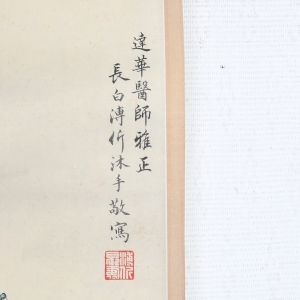 達華醫師雅正
長白溥忻沐手敬寫